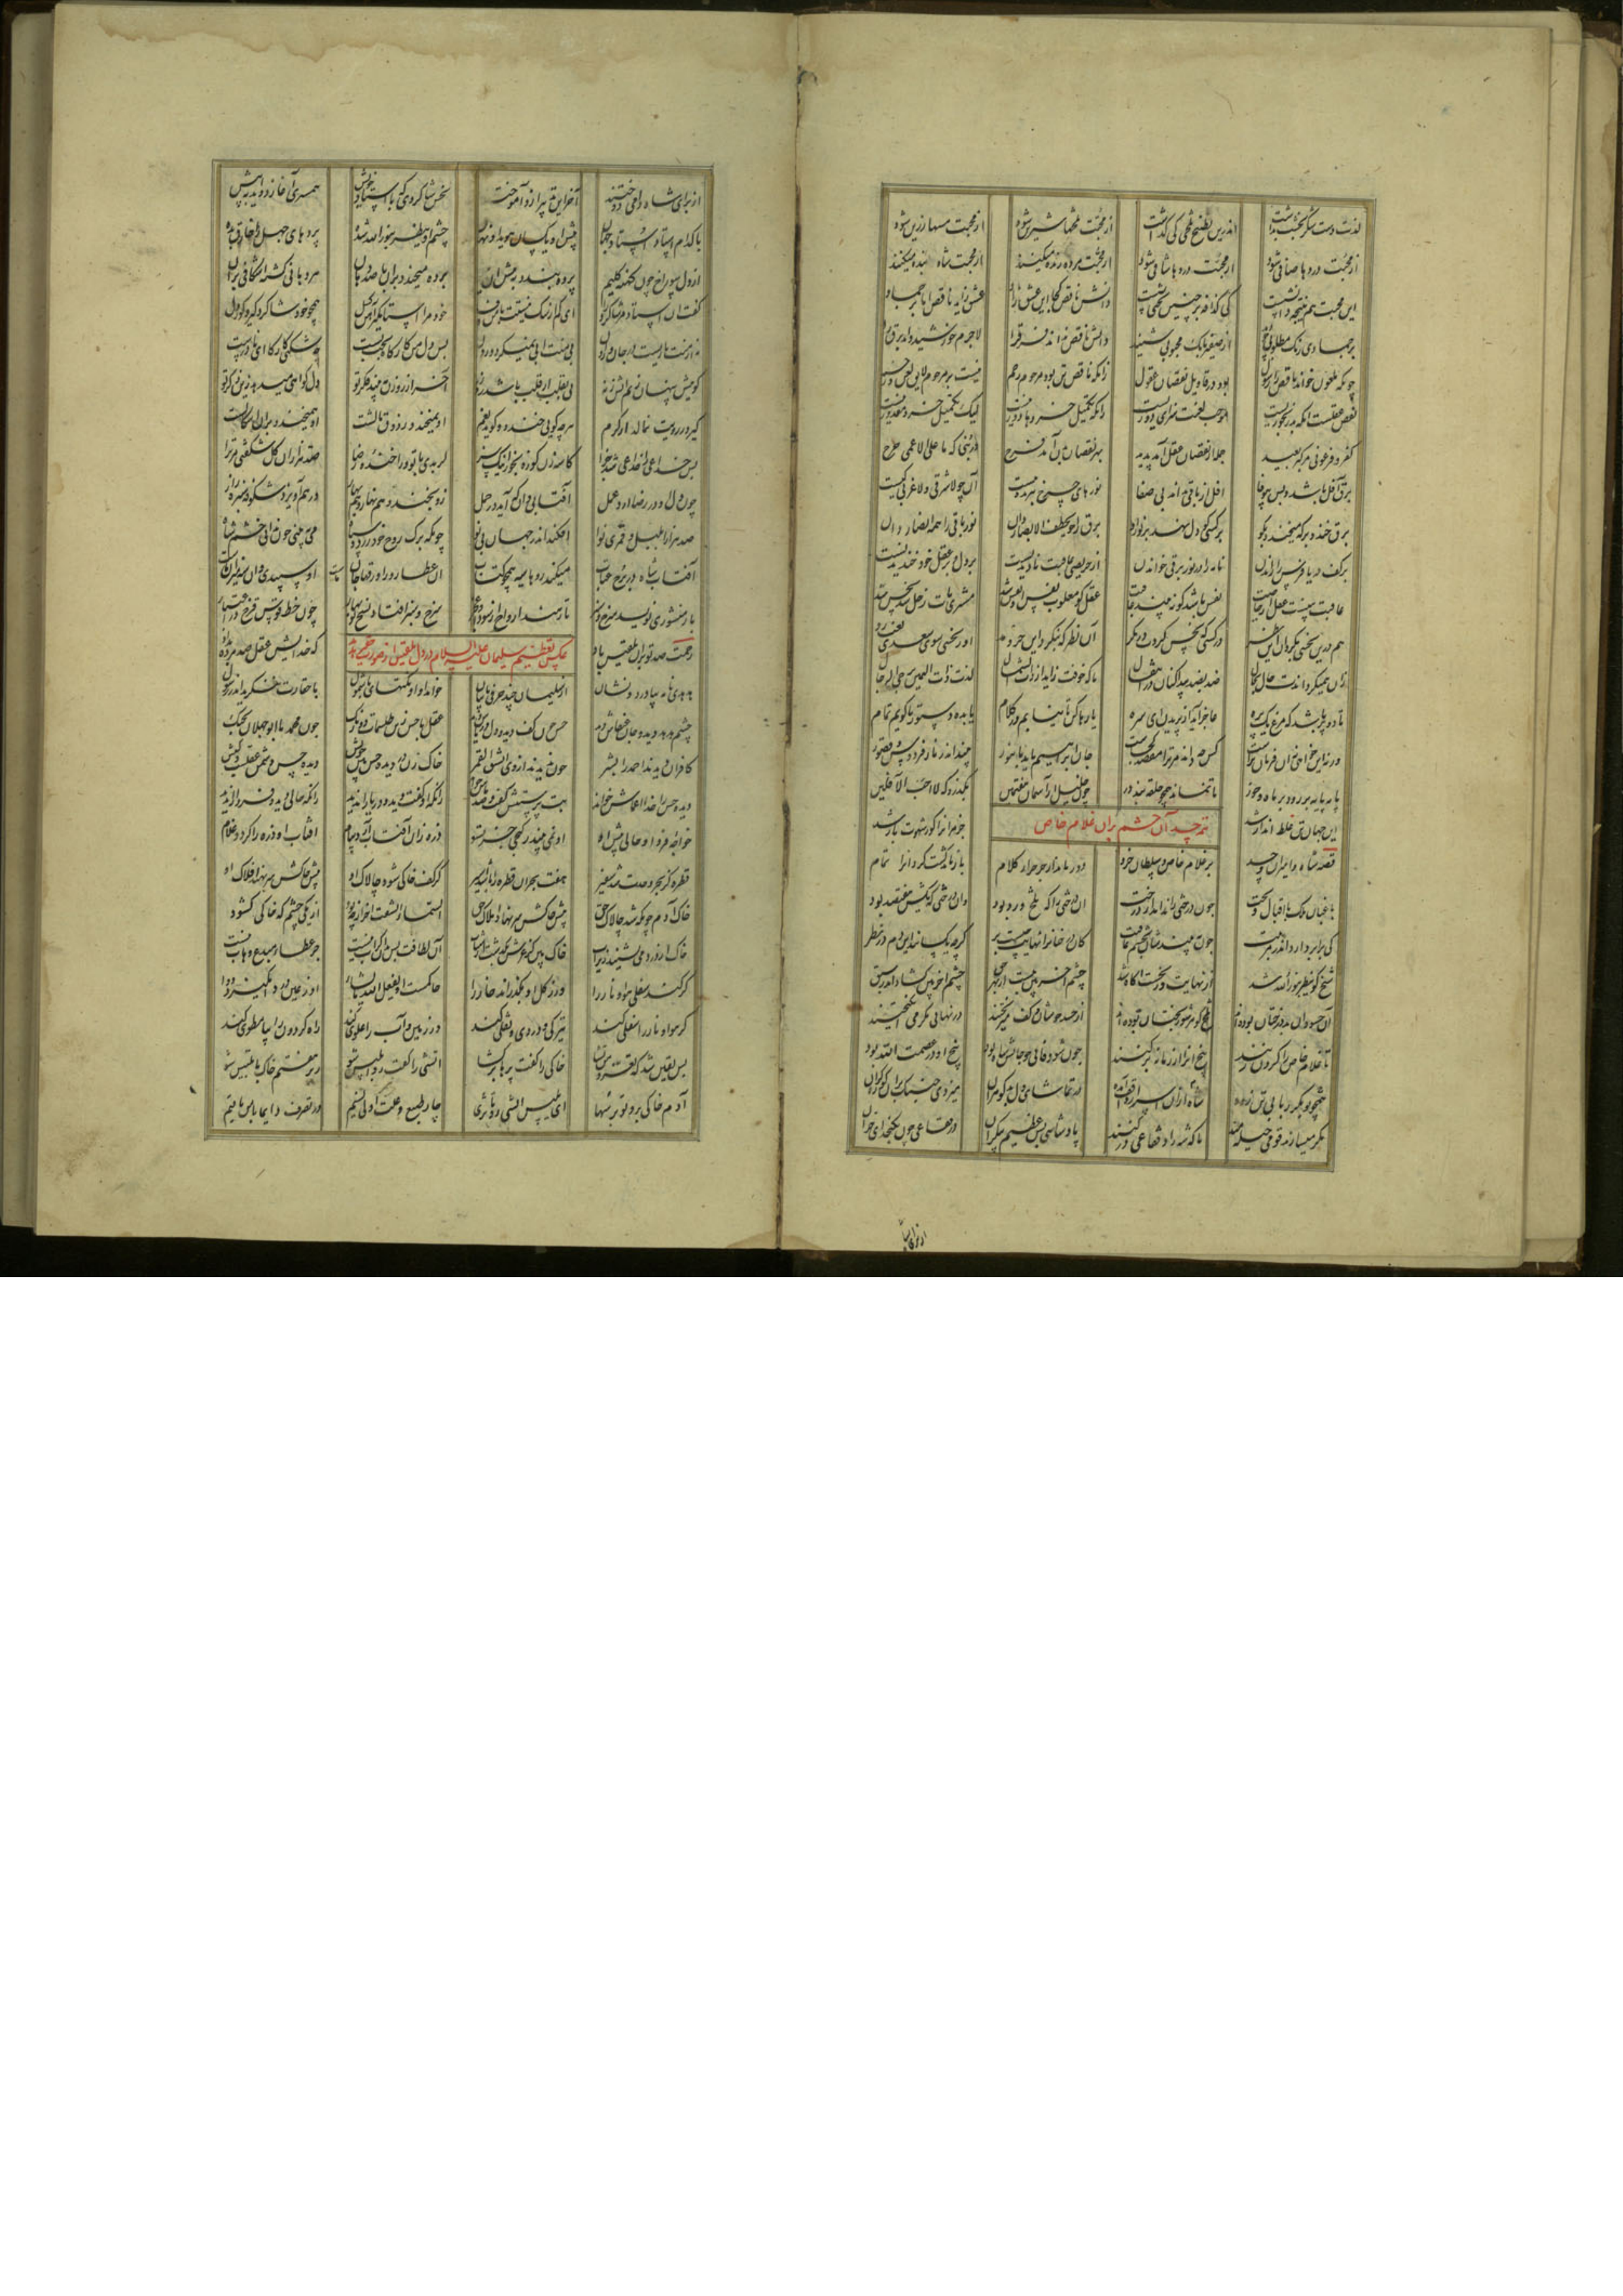 لذت دست شکر بخشت بداشت اندرین بطیخ تلخی کی گذاشت از محبت تلخها شیرین شود از محبت مسها زرین شود
از محبت دردها صافی شود از محبت دردها شافی شود از محبت مرده زنده میکنند از محبت شاه بنده میکنند
این محبت هم نتیجه دانشست کی گزافه بر چنین تختی نشست دانش ناقص کجا این عشق زاد عشق زاید ناقص اما بر جماد
بر جمادی رنگ مطلوبی چو دید از صفیری بانگ محبوبی شنید دانش ناقص نداند فرق را لاجرم خورشید داند برق را
چونکه ملعون خواند ناقص را رسول بود در تاویل نقصان عقول زانکه ناقص تن بود مرحوم رحم نیست بر مرحوم لایق لعن و زخم
نقص عقلست آنکه بد رنجوریست موجب لعنت سزای دوریست زانکه تکمیل خردها دور نیست لیک تکمیل خرد مقدور نیست
کفر و فرعونی هر گبر بعید جمله از نقصان عقل آمد پدید بهر نقصان بدن آمد فرج در نبی که ما علی الاعمی حرج
برق آفل باشد و بس بیوفا آفل از باقی ندانی بی صفا نورهای چرخ ببریده پیست آن چو لا شرقی و لا غربی کیست
برق خنده بر که میخندد بگو بر کسی که دل نهد بر نور او برق را خو یخطف الابصار دان نور باقی را همه انصار دان
بر کف دریا فرس را راندن نامه را در نور برقی خواندن از حریصی عاقبت نادیدنست بر دل و بر عقل خود خندیدنست
عاقبت بینست عقل از خاصیت نفس باشد کو نبیند عاقبت عقل کو مغلوب نفس او نفس شد مشتری مات زحل شد نحس شد
هم درین نحسی بگردان این نظر در کسی که نحس کردت در نگر آن نظر که بنگرد این جر و مد او ز نحسی سوی سعدی نقب زد
زان همیگرداندت حالی بحال ضد بضد پیدا کنان در انتقال تا که خوفت زاید از ذات الشمال لذت ذات الیمین یرجی الرجال
تا دو پر باشی که مرغ یک پره عاجز آید از پریدن ای سره یا رها کن تا نیایم در کلام یا بده دستور تا گویم تمام
ورنه این خواهی نه آن فرمان تراست کس چه داند مر ترا مقصد کجاست جان ابراهیم باید تا بنور بیند اندر نار فردوس و قصور
پایه پایه بر رود بر ماه و خور تا نماند همچو حلقه بند در چون خلیل از آسمان هفتمین بگذرد که لا احب الآفلین
این جهان تن غلط انداز شد جز مر آنرا کو ز شهوت باز شد
تتمه حسد آن حشم بران غلام خاص
قصه شاه و امیران و حسد بر غلام خاص و سلطان خرد دور ماند از جر جرار کلام باز باید گشت و کرد آنرا تمام
باغبان ملک با اقبال و بخت چون درختی را نداند از درخت آن درختی را که تلخ و رد بود وان درختی که یکیش هفصد بود
کی برابر دارد اندر تربیت چون ببیندشان بچشم عاقبت کان درختانرا نهایت چیست بر گرچه یکسانند این دم در نظر
شیخ کو ینظر بنور الله شد از نهایت وز نخست آگاه شد چشم آخر بین ببست از بهر حق چشم آخر بین گشاد اندر سبق
آن حسودان بد درختان بوده اند تلخ گوهر شور بختان بوده اند از حسد جوشان و کف میریختند در نهانی مکر می انگیختند
تا غلام خاص را گردن زنند بیخ او را از زمانه بر کنند چون شود فانی چو جانش شاه بود بیخ او در عصمت الله بود
شاه از آن اسرار واقف آمده همچو بوبکر ربابی تن زده در تماشای دل بدگوهران میزدی خنبک بران کوزه گران
مکر میسازند قومی حیله مند تا که شه را در فقاعی در کنند پادشاهی بس عظیم بیکران در فقاعی چون بگنجد ای خران
از برای شاه
از برای شاه دامی دوختند آخر این تدبیر ازو آموختند نحس شاگردی که با استاد خویش همسری آغازد و آید به پیش
با کدام استاد استاد جهان پیش او یکسان هویدا و نهان چشم او ینظر بنور الله شده پردهای جهل را خارق بده
از دل سوراخ چون کهنه گلیم پرده بندد به پیش آن حکیم پرده میخندد بران با صد دهان هر دهانی گشته اشکافی بران
گفت آن استاد مر شاگرد را ای کم از سگ نیستت با من وفا خود مرا استا مگیر آهن گسل همچو خود شاگرد گیر و کوردل
نه از منت یاریست در جان و روان بی منت آبی نمیگردد روان پس دل من کارگاه بخت تست چه شکنی این کارگاه ای نادرست
گوییش پنهان زنم آتش زنه نی بقلب از قلب باشد روزنه آخر از روزن ببیند فکر تو دل گواهی میدهد زین ذکر تو
گیر در رویت نمالد از کرم هرچه گویی خندد و گوید نعم او نمیخندد ز ذوق مالشت او همیخندد بران اسگالشت
پس خداعی را خداعی شد جزا کاسه زن کوزه بخور اینک سزا گر بدی با تو ورا خنده رضا صد هزاران گل شکفتی مر ترا
چون دل او در رضا آرد عمل آفتابی دان که آید در حمل زو بخندد هم نهار و هم بهار در هم آمیزد شکوفه و سبزه زار
صد هزاران بلبل و قمری نوا افکند اندر جهان بی نوا چونکه برگ روح خود زرد و سیاه می ببینی چون ندانی خشم شاه
آفتاب شاه در برج عتاب میکند روها سیه همچون کتاب آن عطارد را ورقها جان ماست او سپیدی وان سیه میزان ماست
باز منشوری نویسد سرخ و سبز تا رهند ارواح از سودا و عجز سرخ و سبز افتاد نسخ نوبهار چون خط قوس قزح در اعتبار
رحمت صد تو بران بلقیس باد که خدایش عقل صد مرده بداد
عکس تعظیم سلیمان علیه السلام در دل بلقیس از صورت حقیر هدهد
هدهدی نامه بیاورد و نشان از سلیمان چند حرفی با بیان خواند او آن نکتهای با شمول با حقارت ننگرید اندر رسول
چشم هدهد دید و جان عنقاش دید حس چون کف دید و دل دریاش دید عقل با حس زین طلسمات دو رنگ چون محمد با ابوجهلان بجنگ
کافران دیدند احمد را بشر چون ندیدند از وی انشق القمر خاک زن در دیده حس بین خویش دیده حس دشمن عقلست و کیش
دیده حس را خدا اعماش خواند بت پرستش گفت و ضد ماش خواند زانکه او کف دید و دریا را ندید زانکه حالی دید و فردا را ندید
خواجه فردا و حالی پیش او او نمی بیند ز گنجی جز تسو ذره زان آفتاب آرد پیام آفتاب آن ذره را گردد غلام
قطره کز بحر وحدت شد سفیر هفت بحر آن قطره را باشد اسیر گر کف خاکی شود چالاک او پیش خاکش سر نهد افلاک او
خاک آدم چونکه شد چالاک حق پیش خاکش سر نهاد املاک حق السماء انشقت آخر از چه بود از یکی چشم که خاکی گشود
خاک از دردی نشیند زیر آب خاک بین کز عرش بگذشت از شتاب آن لطافت پس بدان کز آب نیست جز عطای مبدع وهاب نیست
گر کند سفلی هوا و نار را ور ز گل او بگذراند خار را حاکمست و یفعل الله ما یشا او ز عین درد انگیزد دوا
گر هوا و نار را سفلی کند تیرگی و دردی و ثفلی کند ور زمین و آب را علوی کند راه گردون را بپا مطوی کند
پس یقین شد که تعز من تشا خاکی را گفت پرها بر گشا آتشی را گفت رو ابلیس شو زیر هفتم خاک با تلبیس شو
آدم خاکی برو تو بر سها ای بلیس آتشی رو تا ثری چار طبع و علت اولی نیم در تصرف دایما من باقیم